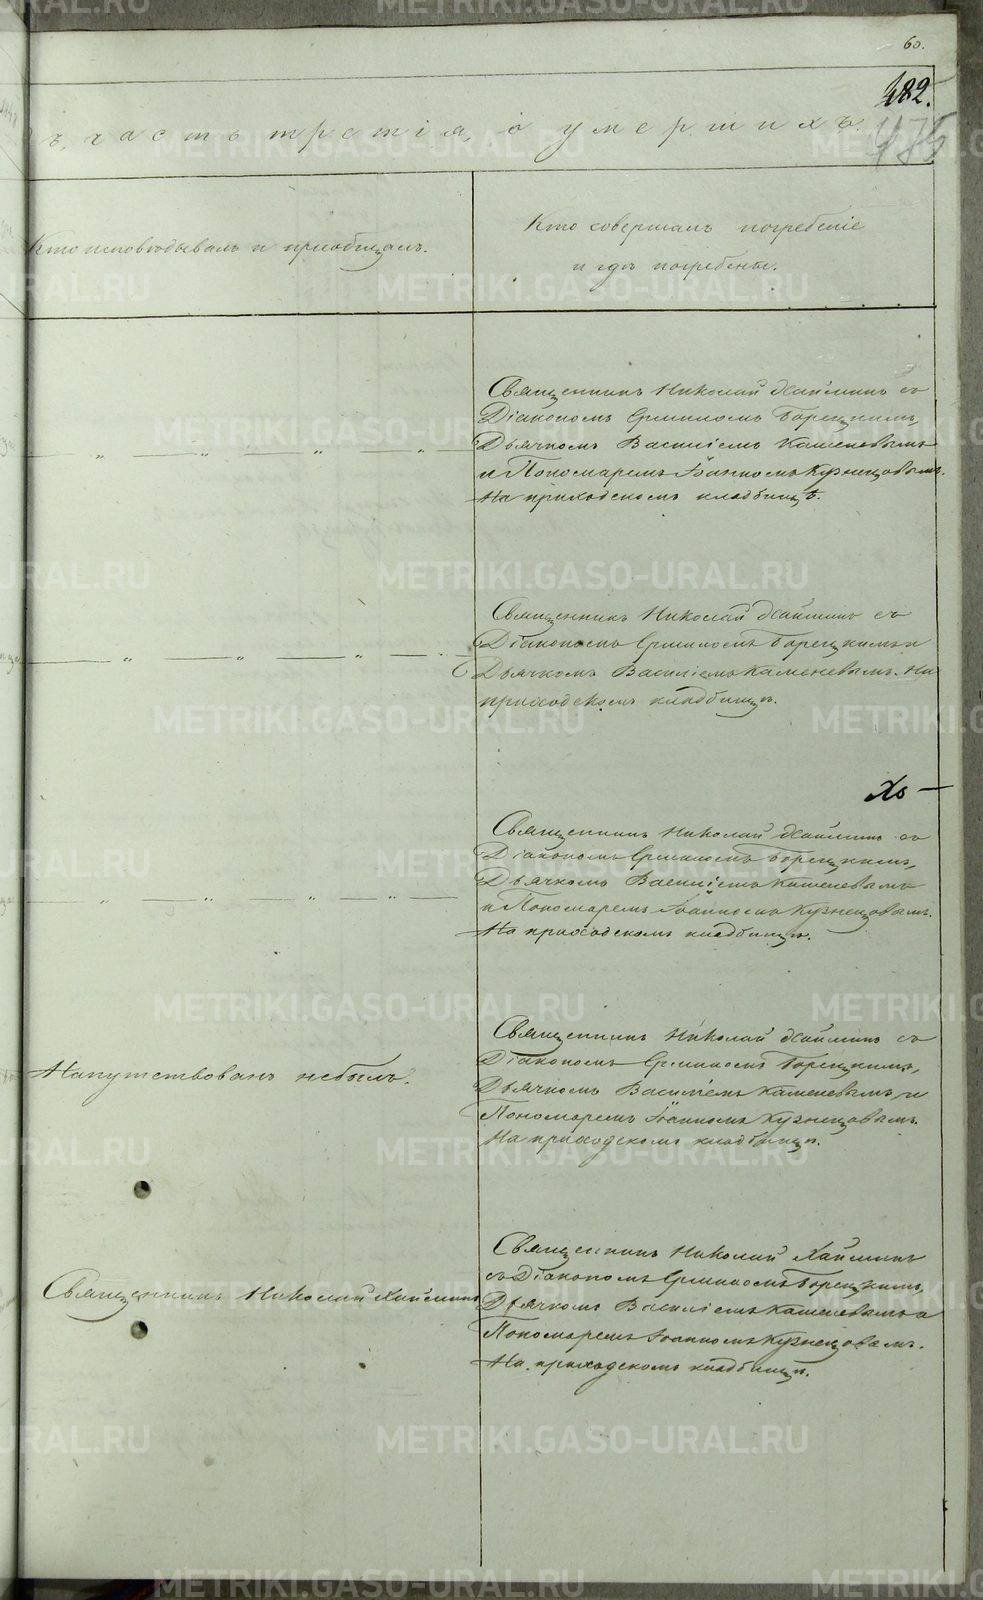 60.
482.
475
ъ, часть третія, о умершихъ.
Кто исповѣдывалъ и пріобщалъ.
Кто совершалъ погребеніе
и гдѣ погребены.
Священникъ Николай Хайминъ съ
Діакономъ Ермиломъ Борецкимъ,
Дьячкомъ Василіемъ Каменевымъ
и Пономаремъ Іоанномъ Кузнецовымъ.
На приходскомъ кладбищѣ.
Священникъ Николай Хайминъ съ
Діакономъ Ермиломъ Борецкимъ и
Дьячкомъ Василіемъ Каменевымъ. На
приходскомъ кладбищѣ.
Священникъ Николай Хайминъ съ
Діакономъ Ермиломъ Борецкимъ,
Дьячкомъ Василіемъ Каменевымъ
и Пономаремъ Іоанномъ Кузнецовымъ.
На приходскомъ кладбищѣ.
Напутствованъ небылъ.
Священникъ Николай Хайминъ съ
Діакономъ Ермиломъ Борецкимъ,
Дьячкомъ Василіемъ Каменевымъ и
Пономаремъ Іоанномъ Кузнецовымъ.
На приходскомъ кладбищѣ.
Священникъ Николай Хайминъ
Священникъ Николай Хайминъ
съ Діакономъ Ермиломъ Борецкимъ,
Дьячкомъ Василіемъ Каменевымъ и
Пономаремъ Іоанномъ Кузнецовымъ.
На приходскомъ кладбищѣ.
METRIKI.GASO-URAL.RU